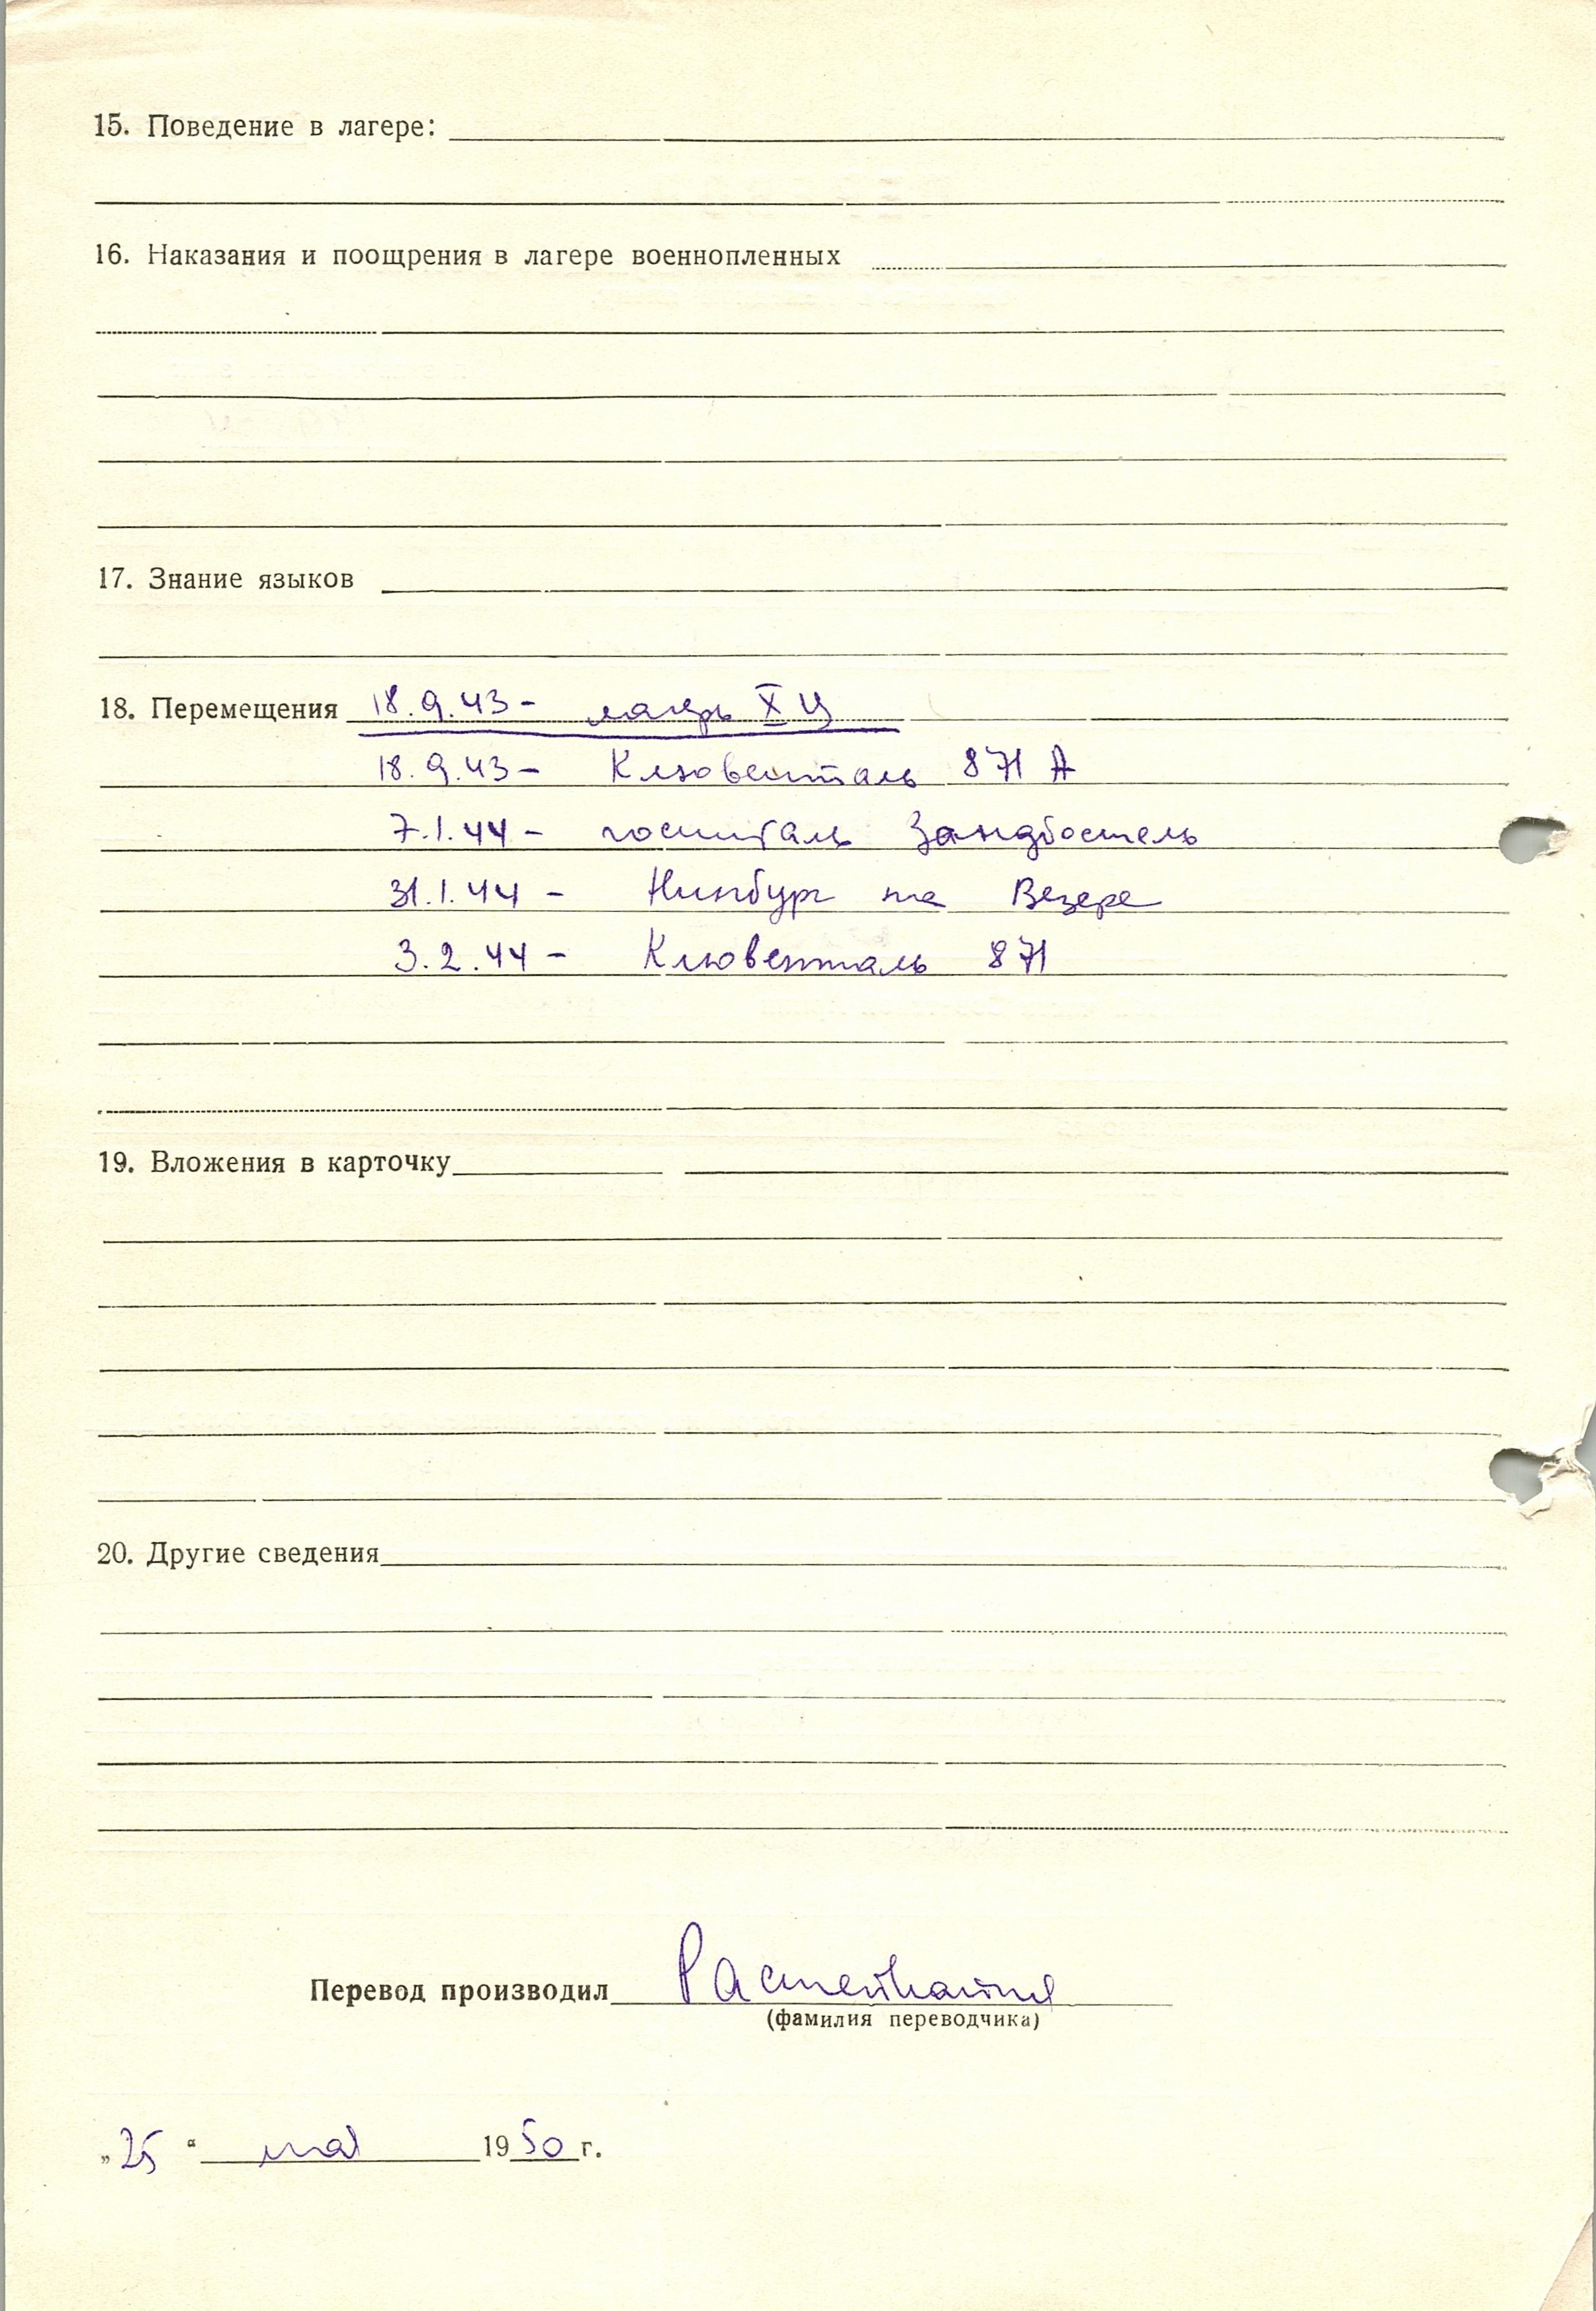 15. Поведение в лагере:
16. Наказания и поощрения в лагере военнопленных
17. Знание языков
18. Перемещения 18.9.43 - лагерь X Ц
18.9.43 - Клювенталь 871 А
7.1.44 - госпиталь Зандбостель
31.1.44 - Нинбург на Везере
3.2.44 - Клювенталь 871
19. Вложения в карточку
20. Другие сведения
Перевод производил
(фамилия переводчика)
„25“ мая 1950 г.